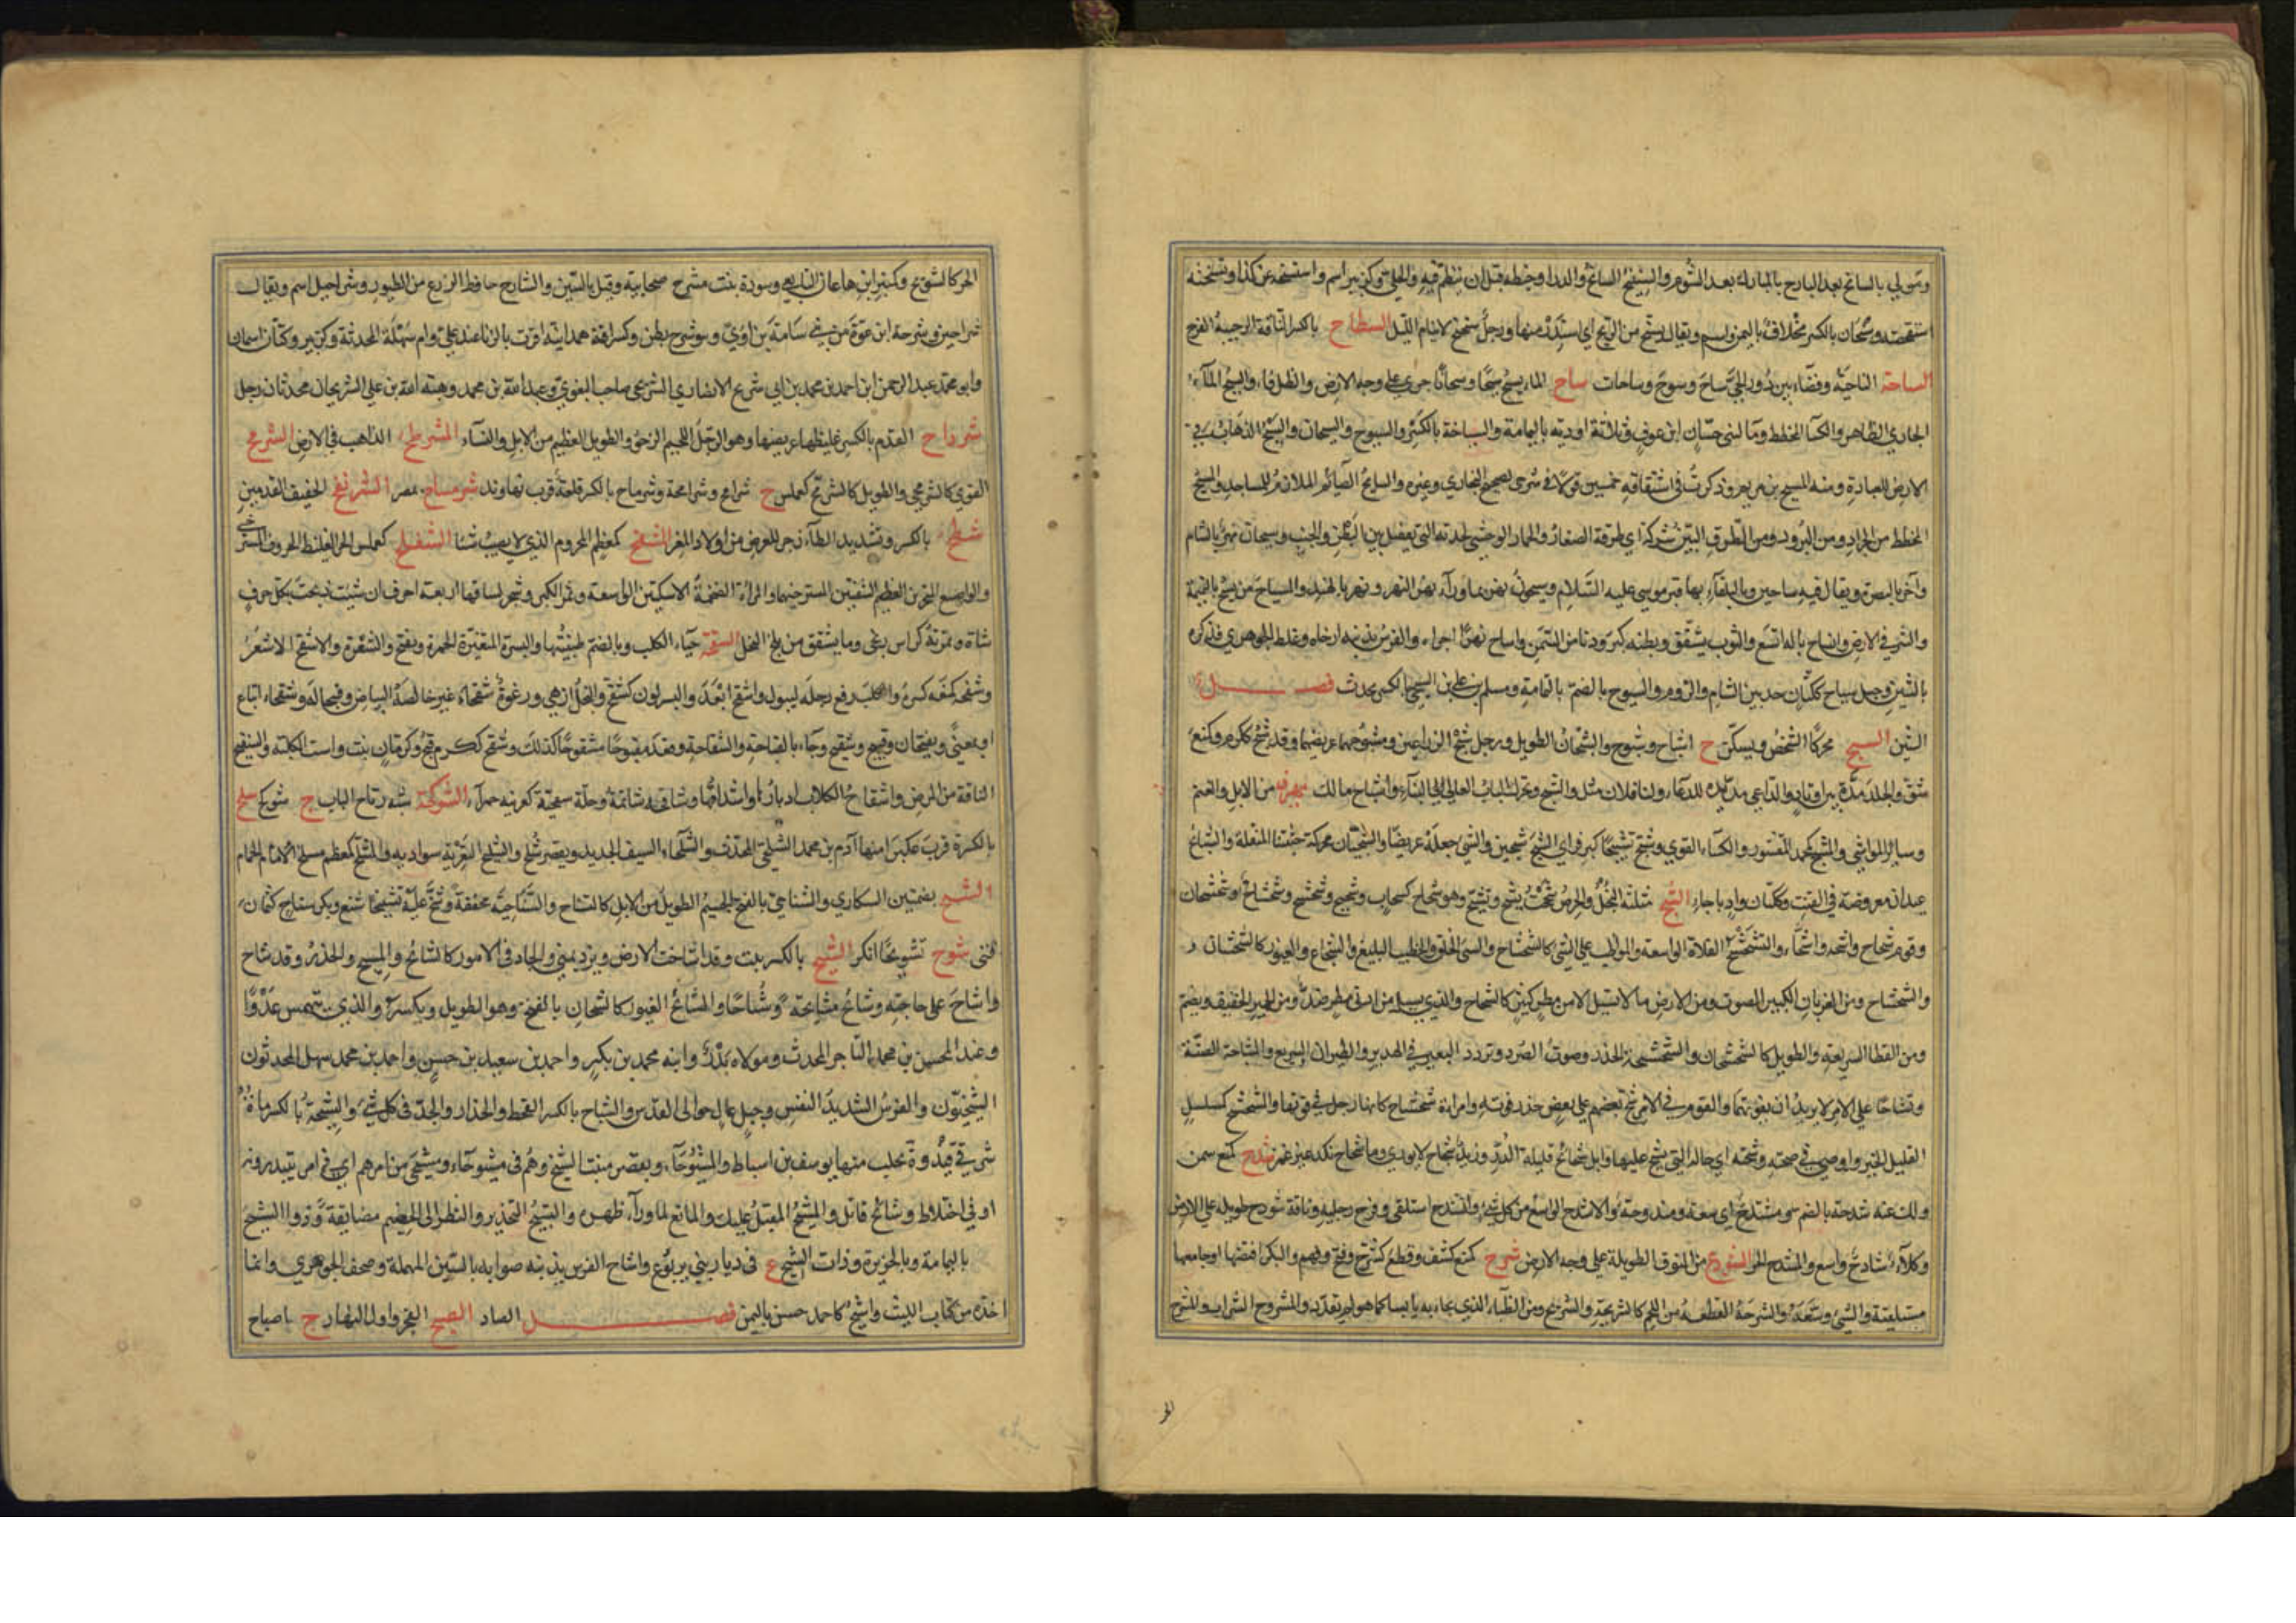 ومن لي بالسانح بعد البارح بالمبارك بعد الشوم والسنيح السانح والدر او خيطه قبل ان ينظم فيه والحلي وكزبير اسم واستسنحه عن كذا وتسنحه
استفحصه وسنحان بالكسر مخلاف باليمن واسم ويقال تسنح من الريح اي استذر منها ورجل سنحنح لا ينام الليل السنطاح بالكسر الناقة الرحيبة الفرج
الساحة الناحية وفضاء بين دور الحي ساح وسوح وساحات ساح الماء يسيح سيحا وسيحانا جرى على وجه الارض والظل فاء والسيح الماء
الجاري الظاهر والكسا المخطط وماء لبني حسان ابن عوف وثلاثة اودية باليمامة والسياحة بالكسر والسيوح والسيحان والسيح الذهاب في
الارض للعبادة ومنه المسيح بن مريم وذكرت في اشتقاقه خمسين قولا في شرحي لصحيح البخاري وغيره والسايح الصائم الملازم للمساجد والمسيح
المخطط من الجراد ومن البرود ومن الطرق المبين شركه اي طرقه الصغار والحمار الوحشي لجدته التي تفصل بين البطن والجنب وسيحان نهر بالشام
وآخر بالبصرة ويقال فيه ساحين وة بالبلقاء بها قبر موسى عليه السلام وسيحون نهر بما وراء النهر ونهر بالهند والمسياح من يسيح بالنميمة
والشر في الارض وانساح باله اتسع والثوب تشقق وبطنه كبر ودنا من السمن واساح نهرا اجراه والفرس بذنبه ارخاه وغلط الجوهري فذكره
بالشين وجبل سياح ككتان حد بين الشام والروم والسيوح بالضم ة باليمامة ومسلم بن علي بن السيحي بالكسر محدث فصل
الشين الشبح محركا الشخص ويسكن ج اشباح وشبوح والشبحان الطويل ورجل شبح الذراعين ومشبوحهما عريضهما وقد شبح ككرم وكمنع
شق والجلد مده بين اوتاد والداعي مد يده للدعاء وفلان لفلان مثل والشبح ويحرك الباب العالي البناء واشباح مالك ما يعرف من الابل والغنم
وسائر المواشي والمشبح كمحمد المقشور والكساء القوي وشبح تشبيحا كبر فراى الشبح شبحين والشيء جعله عريضا والشبحتان محركة خشبتا المنقلة والشبائح
عيدان معروضة في القتب وككتان واد باجا الشح مثلثة البخل والحرص شححت تشح وتشح وهو شحاح كسحاب وشحيح وشحشح وشحشاح وشحشحان
وقوم شحاح واشحة واشحاء والشحشح الفلاة الواسعة والمواظب على الشيء كالشحشاح والسيئ الخلق والخطيب البليغ والشجاع والغيور كالشحشحان
والشحشاح ومن الغربان الكثير الصوت ومن الارض ما لا تسيل الا من مطر كثير كالشحاح والذي يسيل من ادنى مطر ضد ومن الحمير الخفيف ويضم
ومن القطا السريعة والطويل كالشحشحان والشحشحة الحذر وصوت الصرد وتردد البعير في الهدير والطيران السريع والمشاحة الضنة
وتشاحا على الامر لا يريدان يفوتهما والقوم في الامر شح بعضهم على بعض حذر فوته وامراة شحشاح كانها رجل في قوتها والمشحشح كمسلسل
القليل الخير واوصى في صحته وشحته اي حاله التي يشح عليها وابل شحائح قليلة الدر وزند شحاح لا يوري وماء شحاح نكد غير غمر شدح كمنع سمن
ولك عنه شدحة بالضم ومشتدح اي سعة ومندوحة والاشدح الواسع من كل شيء وانشدح استلقى وفرج رجليه وناقة شودح طويلة على الارض
وكلاء شادح واسع والمشدح الحر الشوذح من النوق الطويلة على وجه الارض شرح كمنع كشف وقطع كشرح وفتح وفهم والبكر افتضها او جامعها
مستلقية والشيء وسعه والشرحة القطعة من اللحم كالشريحة والشريح ومن الظباء الذي يجاء به يابسا كما هو لم يقدد والمشروح السراب والمشرح
الحر
الحر كالشريح وكمنبر ابن هاعان التابعي وسودة بنت مشرح صحابية وقيل بالسين والشارح حافظ الزرع من الطيور وشراحيل اسم ويقال
شراحين وشرحة ابن عوة من بني سامة بن لؤي وبنو شرح بطن وكسراقة همدانية اقرت بالزنا عند علي وام سهلة المحدثة وكزبير وكتان اسمان
وابو محمد عبد الرحمن ابن احمد بن محمد بن ابي شريح الانصاري الشريحي صاحب البغوي وعبد الله بن محمد وهبة الله بن علي الشريحيان محدثان رجل
شرداح القدم بالكسر غليظها عريضها وهو الرجل اللحيم الرخو والطويل العظيم من الابل والنساء المشرطح الذاهب في الارض الشرمح
القوي كالشرمحي والطويل كالشرمح كعملس ج شرامح وشرامحة وشرماح بالكسر قلعة قرب نهاوند شرمساح ة بمصر الشرنفح الخفيف القدمين
شطح بالكسر وتشديد الطاء زجر للعريض من اولاد المعز المشفح كمعظم المحروم الذي لا يصيب شيئا الشفلح كعملس الحر الغليظ الحروف المسترخي
والواسع المنخرين العظيم الشفتين المسترخيهما والمراة الضخمة الاسكتين الواسعة وثمر الكبر وشجر لساقها اربعة احرف ان شئت ذبحت بكل حرف
شاة وثمرته كراس زنجي وما يشقق من بلح النخل الشقحة حياء الكلب وبالضم ظبيتها والبسرة المتغيرة للحمرة ويفتح والشقرة والاشقح الاشقر
وشقحه كمنعه كسره والكلب رفع رجله ليبول واشقح ابعد والبسر لون كشقح والنخل ازهى ورغوة شقحاء غير خالصة البياض وقبحا له وشقحا اتباع
او بمعنى ويفتحان وقبيح وشقيح وجاء بالقباحة والشقاحة وقعد مقبوحا مشقوحا كذلك وشقح ككرم قبح وكرمان نبت واست الكلبة والشقيح
الناقة من المرض واشقاح الكلاب ادبارها واشداقها وشاقحه شاتمه وحلة شقحية كعرنية حمراء الشوكحة شبه رتاج الباب ج شوكح شلح
بالكسر ة قرب عكبرا منها آدم بن محمد الشلحي المحدث والشلحاء السيف الجديد ويقصر شلح والشلح التعرية سوادية والمشلح كمعظم مسلخ الحمام
الشنح بضمتين السكارى والشناحي بالفتح الجسيم الطويل من الابل كالشناح والشناحية مخففة وشنح عليه تشنيحا شنع وبكر شناح كثمان
فتى شوح تشويحا انكر الشيح بالكسر نبت وقد اشاحت الارض وبرد يمني والجاد في الامور كالشائح والمشيح والحذر وقد شاح
واشاح على حاجته وشايح مشايحة وشياحا والشائح الغيور كالشيحان بالفتح وهو الطويل ويكسر والذي يتهمس عدوا
وعبد المحسن بن محمد التاجر المحدث ومولاه بدر وابنه محمد بن بكير واحمد بن سعيد بن حسن واحمد بن محمد سهل المحدثون
الشيحيون والفرس الشديد النفس وجبل عال حوالى القدس والشياح بالكسر القحط والحذار والجد في كل شيء والشيحة بالكسر ماءة
شرقي فيد وة بحلب منها يوسف بن اسباط والمشيوحاء ويقصر منبت الشيح وهم في مشيوحاء ومشيحى من امرهم اي في امر يبتدرونه
او في اختلاط وشائح قاتل والمشيح المقبل عليك والمانع لما وراء ظهره والتشييح التحذير والنظر الى الخصم مضايقة وذو الشيح
باليمامة وبالجزيرة وذات الشيح ع في ديار بني يربوع واشاح الفرس بذنبه صوابه بالسين المهملة وصحف الجوهري وانما
اخذه من كتاب الليث واشيح كاحمد حصن باليمن فصل الصاد الصبح الفجر او اول النهار ج اصباح